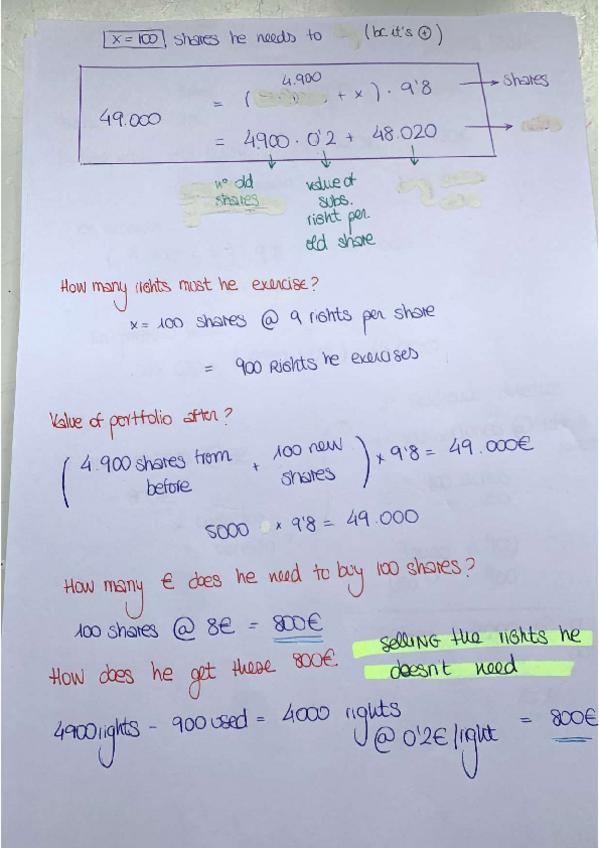 x = 100 shares he needs to (bc it's ⊕)
4.900
49.000 = ( + x ) · 9'8 → shares
= 4900 · 0'2 + 48.020 →
↓ ↓ ↓
nº old shares
value of subs. right per old share
How many rights must he exercise?
x = 100 shares @ 9 rights per share
= 900 Rights he exercises
Value of portfolio after?
( 4.900 shares from before + 100 new shares ) × 9'8 = 49.000€
5000 × 9'8 = 49.000
How many € does he need to buy 100 shares?
100 shares @ 8€ = 800€
How does he get these 800€.
selling the rights he
doesn't need
4900 rights - 900 used = 4000 rights
@ 0'2€/right = 800€